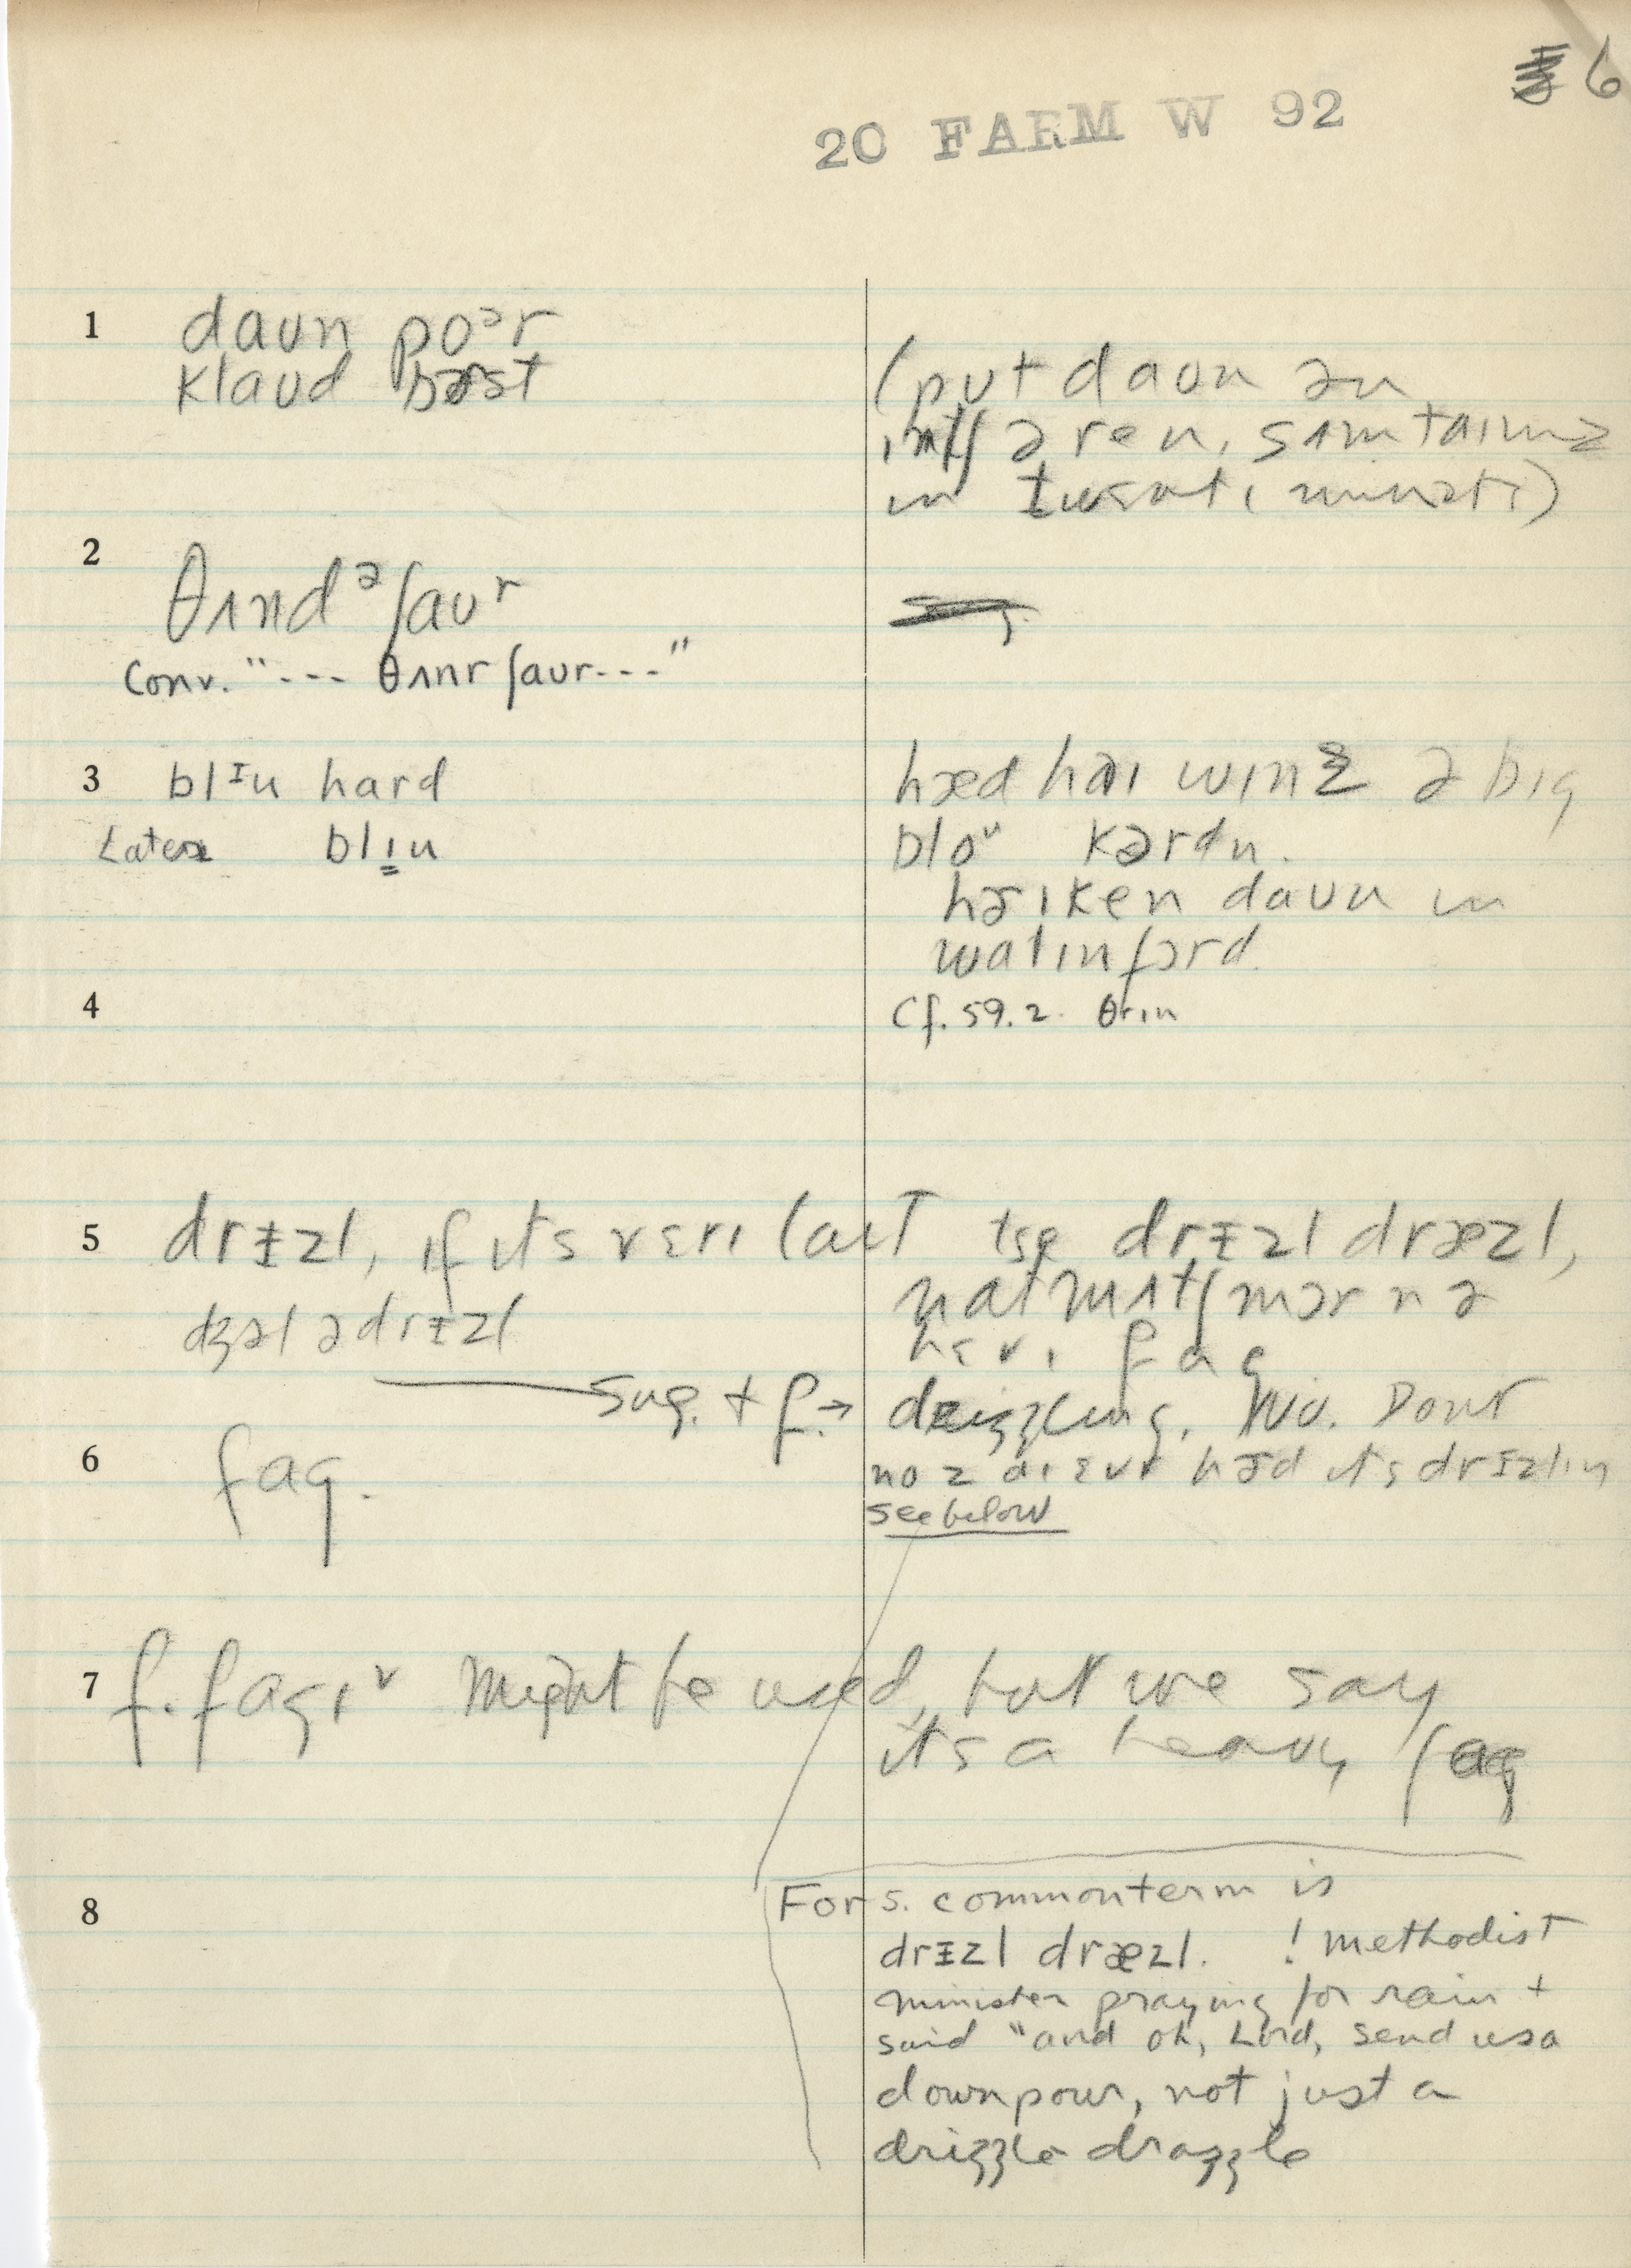 6
20 FARM W 92
1 daʊn poᵊr
klaʊd bɚst
(pʊt daʊn ən
ɪntʃ ə ren, sʌmtaɪmz
ɪn twɛntɪ mɪnəts)
2 θʌndᵊʃaʊʳ
Conv. "--- θʌnrʃaʊr---"
3 blᶦu hard
Later blɪu
hæd haɪ wɪnz ə bɪg
bloᵘ
hɚɪken daʊn ɪn
walɪnfərd.
4 Cf. 59.2. θrɪn
5 drɪzl, ɪf ɪts vɛrɪ laɪt
dʒəl ə drɪzl
ɪse drɪzl dræzl,
natmʌtʃ mər n ə
hɛvɪ fag
sug. + f. → drizzling. Dont
no z aɪ ɛvr hɚd ɪts drɪzlɪŋ
see below
6 fag.
7 f. fagɪᵛ Might be used, but we say
its a heavy fag
8 For s. common term is
drɪzl dræzl. ! methodist
minister praying for rain +
said "and oh, Lord, send us a
downpour, not just a
drizzle drazzle